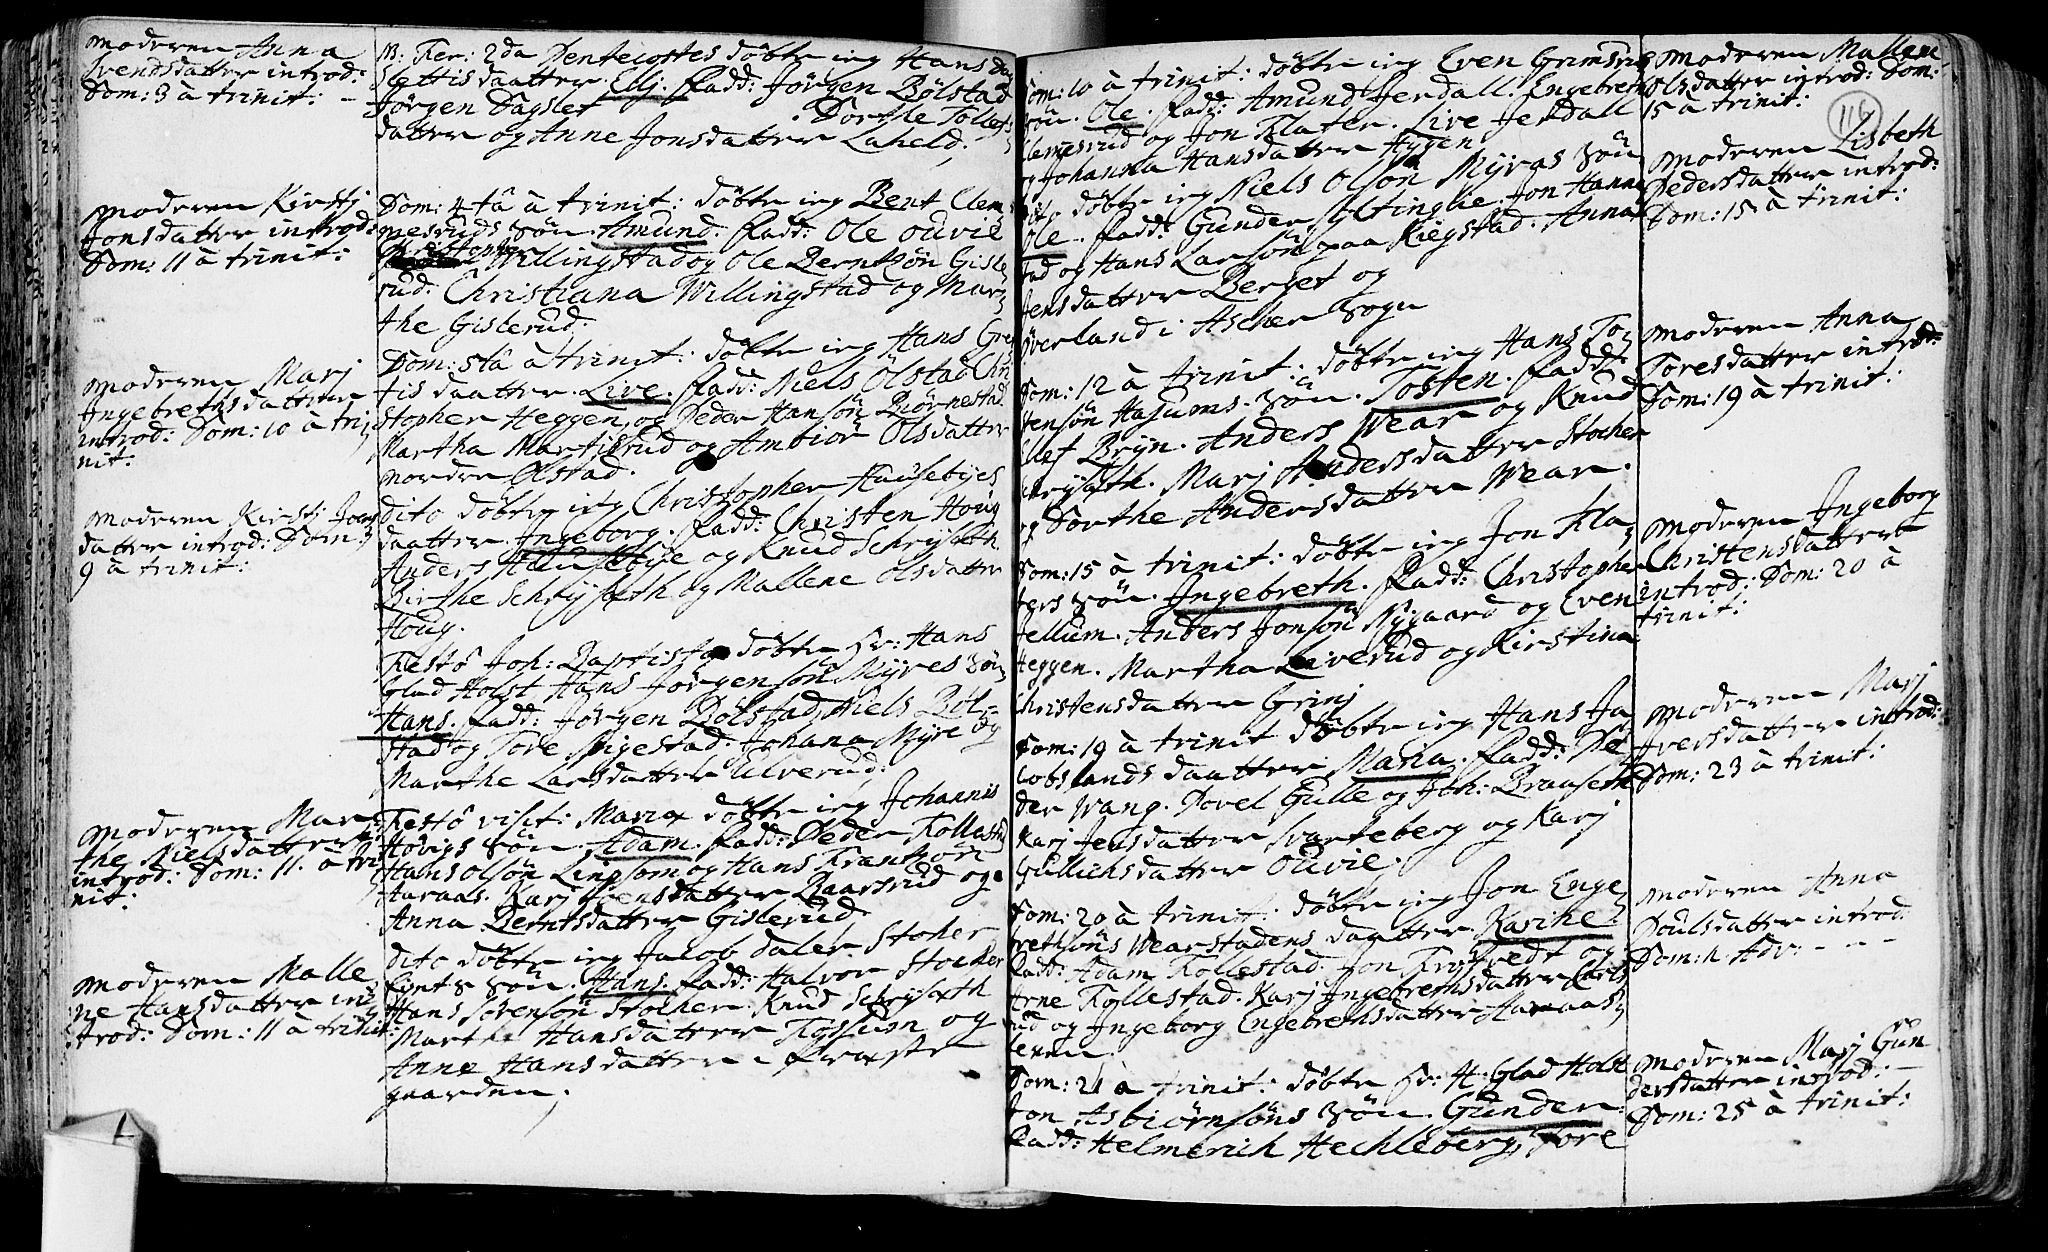 Moderen Anna
Svendsdatter introd:
Dom: 3 à trinit: -
Moderen Kirstj
Jonsdatter introd:
Dom: 11 à trinit:
Moderen Marj
Ingebrethsdatter
introd: Dom: 10 à tri
nit:
Moderen Kirstj Jons
datter introd: Dom:
9 à trinit:
Moderen Mar
the Nielsdatter
introd: Dom: 11. à tri
nit:
Moderen Malle
ne Hansdatter in
trod: Dom: 11 à trinit:
Fer: 2da Pentecostes döbte ieg Hans
daatter Elj. Fadd: Jörgen Bölstad
Jörgen Dagslet Dorthe Tollefs
datter og Anne Jonsdatter Laheld.
Dom: 4ta à trinit: döbte ieg Bent Clem
mesruds Sön Amund. Fadd: Ole Ouvie
Willingstad og Ole Berntsön Gisle
rud. Christiana Willingstad og Mar
the Gislerud.
Dom: 5ta à trinit: döbte ieg Hans Gre
tis daatter Live. Fadd: Niels Ölstad Chri
stopher Heggen, og Peder Hansön Biörnestad
Martha Martisrud og Ambiör Olsdatter
nordre Ölstad.
dito döbte ieg Christopher Hausebyes
daatter Ingeborg. Fadd: Christen Houg
Anders Hausebye og Knud Schrijseth
Birthe Schrijseth og Mallene Olsdatter
Houg.
Festo Joh: Baptistæ döbte Hr: Hans
Glad Holst Hans Jörgensön Myres Sön
Hans. Fadd: Jörgen Bölstad, Niels Böl-
stad og Tore Spigestad. Johana Myre og
Marthe Larsdatter Elverud.
Festo visit: Mariæ döbte ieg Johannis
Hövigs Sön Adam. Fadd: Peder Follestad
Hans Olsön Lingsom og Hans Frantzön
Haraas. Karj Svensdatter Baarsrud og
Anna Berntsdatter Gislerud.
dito döbte ieg Jacob Daler Stocher
Eients Sön. Hans. Fadd: Halvor Stocker
Hans Sörensön Stocher Knud Schrijseth
Marthe Hansdatter Fossum og
Anne Hansdatter i Præste
gaarden.
Dom: 10 à trinit: döbte ieg Even Grimsrud
Sön. Ole. Fadd: Amund Jerdall. Engebreth
Clemesrud og Jon Flater. Live Jerdall
og Johanna Hansdatter Hygen
dito döbte ieg Niels Olsön Myras Sön
Ole. Fadd: Gunder Syltingliæ. Jon Hanne
stad og Hans Larsön paa Riegstad. Anna
Jensdatter Berget og
Överland i Ascher Sogn
Dom: 12 à trinit: döbte ieg Hans To
stensön Hasums Sön. Tosten. Fadd:
Ellef Bryn. Anders Wear og Knud
Schryseth. Marj Andersdatter Stocher
og Dorthe Andersdatter Wear.
Dom: 15 à trinit: döbte ieg Jon Fla
ters Sön. Ingebreth. Fadd: Christopher
Jellum. Anders Jonsön Nygaard og Even
Heggen. Martha Liverud og Kirstina
Christensdatter Grinj
Dom: 19 à trinit döbte ieg Hans Ja
cobslands daatter Maria. Fadd: Pe
der Wang. Povel Gulle og Joh: Braaseth
Karj Jensdatter Svarteberg og Karj
Gullichsdatter Ouvie.
Dom: 20 à trinit: döbte ieg Jon Enge
brethsöns Wearstadens daatter Karine.
Fadd: Adam Follestad. Jon Trostvedt og
Arne Follestad. Karj Ingebrethsdatter Carls
rud og Ingeborg Engebrethsdatter Haraas
leren.
Dom: 21 à trinit: döbte Hr: H: Glad Holst
Jon Asbiörnsöns Sön. Gunder.
Fadd: Helmerich Hechleberg, Tore
Moderen Mallene
Olsdatter introd: Dom:
15 à trinit:
116
Moderen Lisbeth
Pedersdatter introd:
Dom: 15 à trinit:
Moderen Anna
Toresdatter introd:
Dom: 19 à trinit:
Moderen Ingeborg
Christensdatter
introd: Dom: 20 à
trinit:
Moderen Marj
Iversdatter introd:
Dom: 23 à trinit:
Moderen Anna
Poulsdatter introd:
Dom: 1. Adv: - - -
Moderen Marj Gun
dersdatter introd: -
Dom: 25 à trinit: